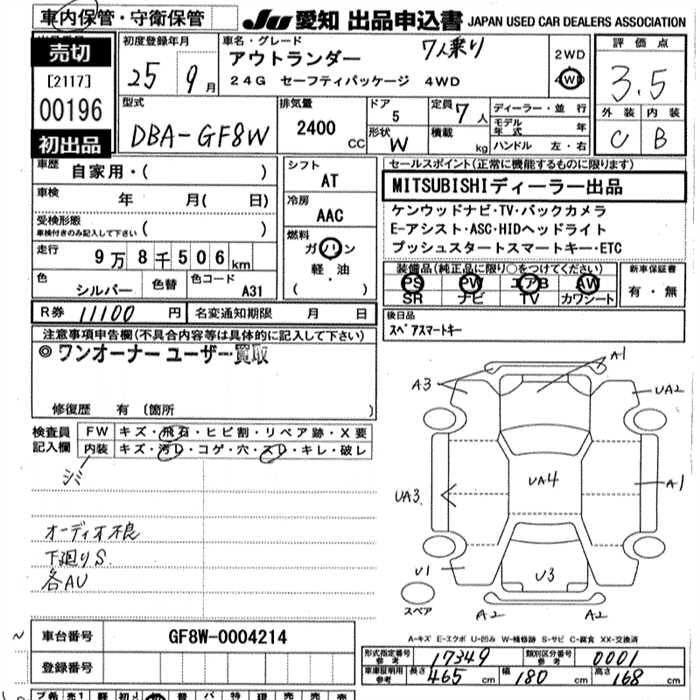 車内保管・守衛保管
JU 愛知 出品申込書 JAPAN USED CAR DEALERS ASSOCIATION
売切
[2117]
00196
初出品
初度登録年月
25年 9月
車名・グレード
アウトランダー 7人乗り
24G セーフティパッケージ 4WD
2WD
4WD
評価点
3.5
外装 内装
C B
型式
DBA-GF8W
排気量
2400 CC
ドア
5
形状 W
定員 7人
積載 kg
ディーラー・並行
モデル年式 年
ハンドル 左・右
車歴 自家用・( )
車検 年 月( 日)
受検形態
車検付きのみ記入して下さい ( )
走行 9万8千506km
色 シルバー 色替 色コード A31
シフト
AT
冷房
AAC
燃料
ガソリン
軽・油
( )
セールスポイント(正常に機能するものに限ります)
MITSUBISHIディーラー出品
ケンウッドナビ・TV・バックカメラ
E-アシスト・ASC・HIDヘッドライト
プッシュスタートスマートキー・ETC
装備品(純正品に限り○をつけてください)
PS PW エアB AW
SR ナビ TV カワシート
新車保証書
有・無
R券 11100円 名変通知期限 月 日
後日品
スペアスマートキー
注意事項申告欄(不具合内容等は具体的に記入して下さい)
◎ワンオーナー ユーザー買取
修復歴 有 (箇所 )
検査員記入欄
FW キズ・飛石・ヒビ割・リペア跡・X要
内装 キズ・汚レ・コゲ・穴・スレ・キレ・破レ
シミ
オーディオ不良
下廻りS
各AU
A3 A1
UA2
UA3 UA4 A1
U1 U3
スペア A2 A2
車台番号 GF8W-0004214
登録番号
A-キズ E-エクボ U-凹み W-補修跡 S-サビ C-腐食 XX-交換済
形式指定番号 参考 17349 類別区分番号 参考 0001
車庫証明用 参考 長さ 465cm 幅 180cm 高さ 168cm